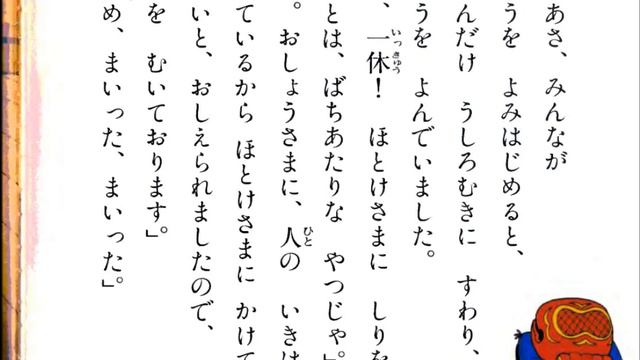 あさ、みんなが
うを　よみはじめると、
んだけ　うしろむきに　すわり、
うを　よんでいました。
、一休！　ほとけさまに　しりを
とは、ばちあたりな　やつじゃ」。
。おしょうさまに、人の　いきは
ているから　ほとけさまに　かけて
いと、おしえられましたので、
を　むいております」。
め、まいった、まいった」。